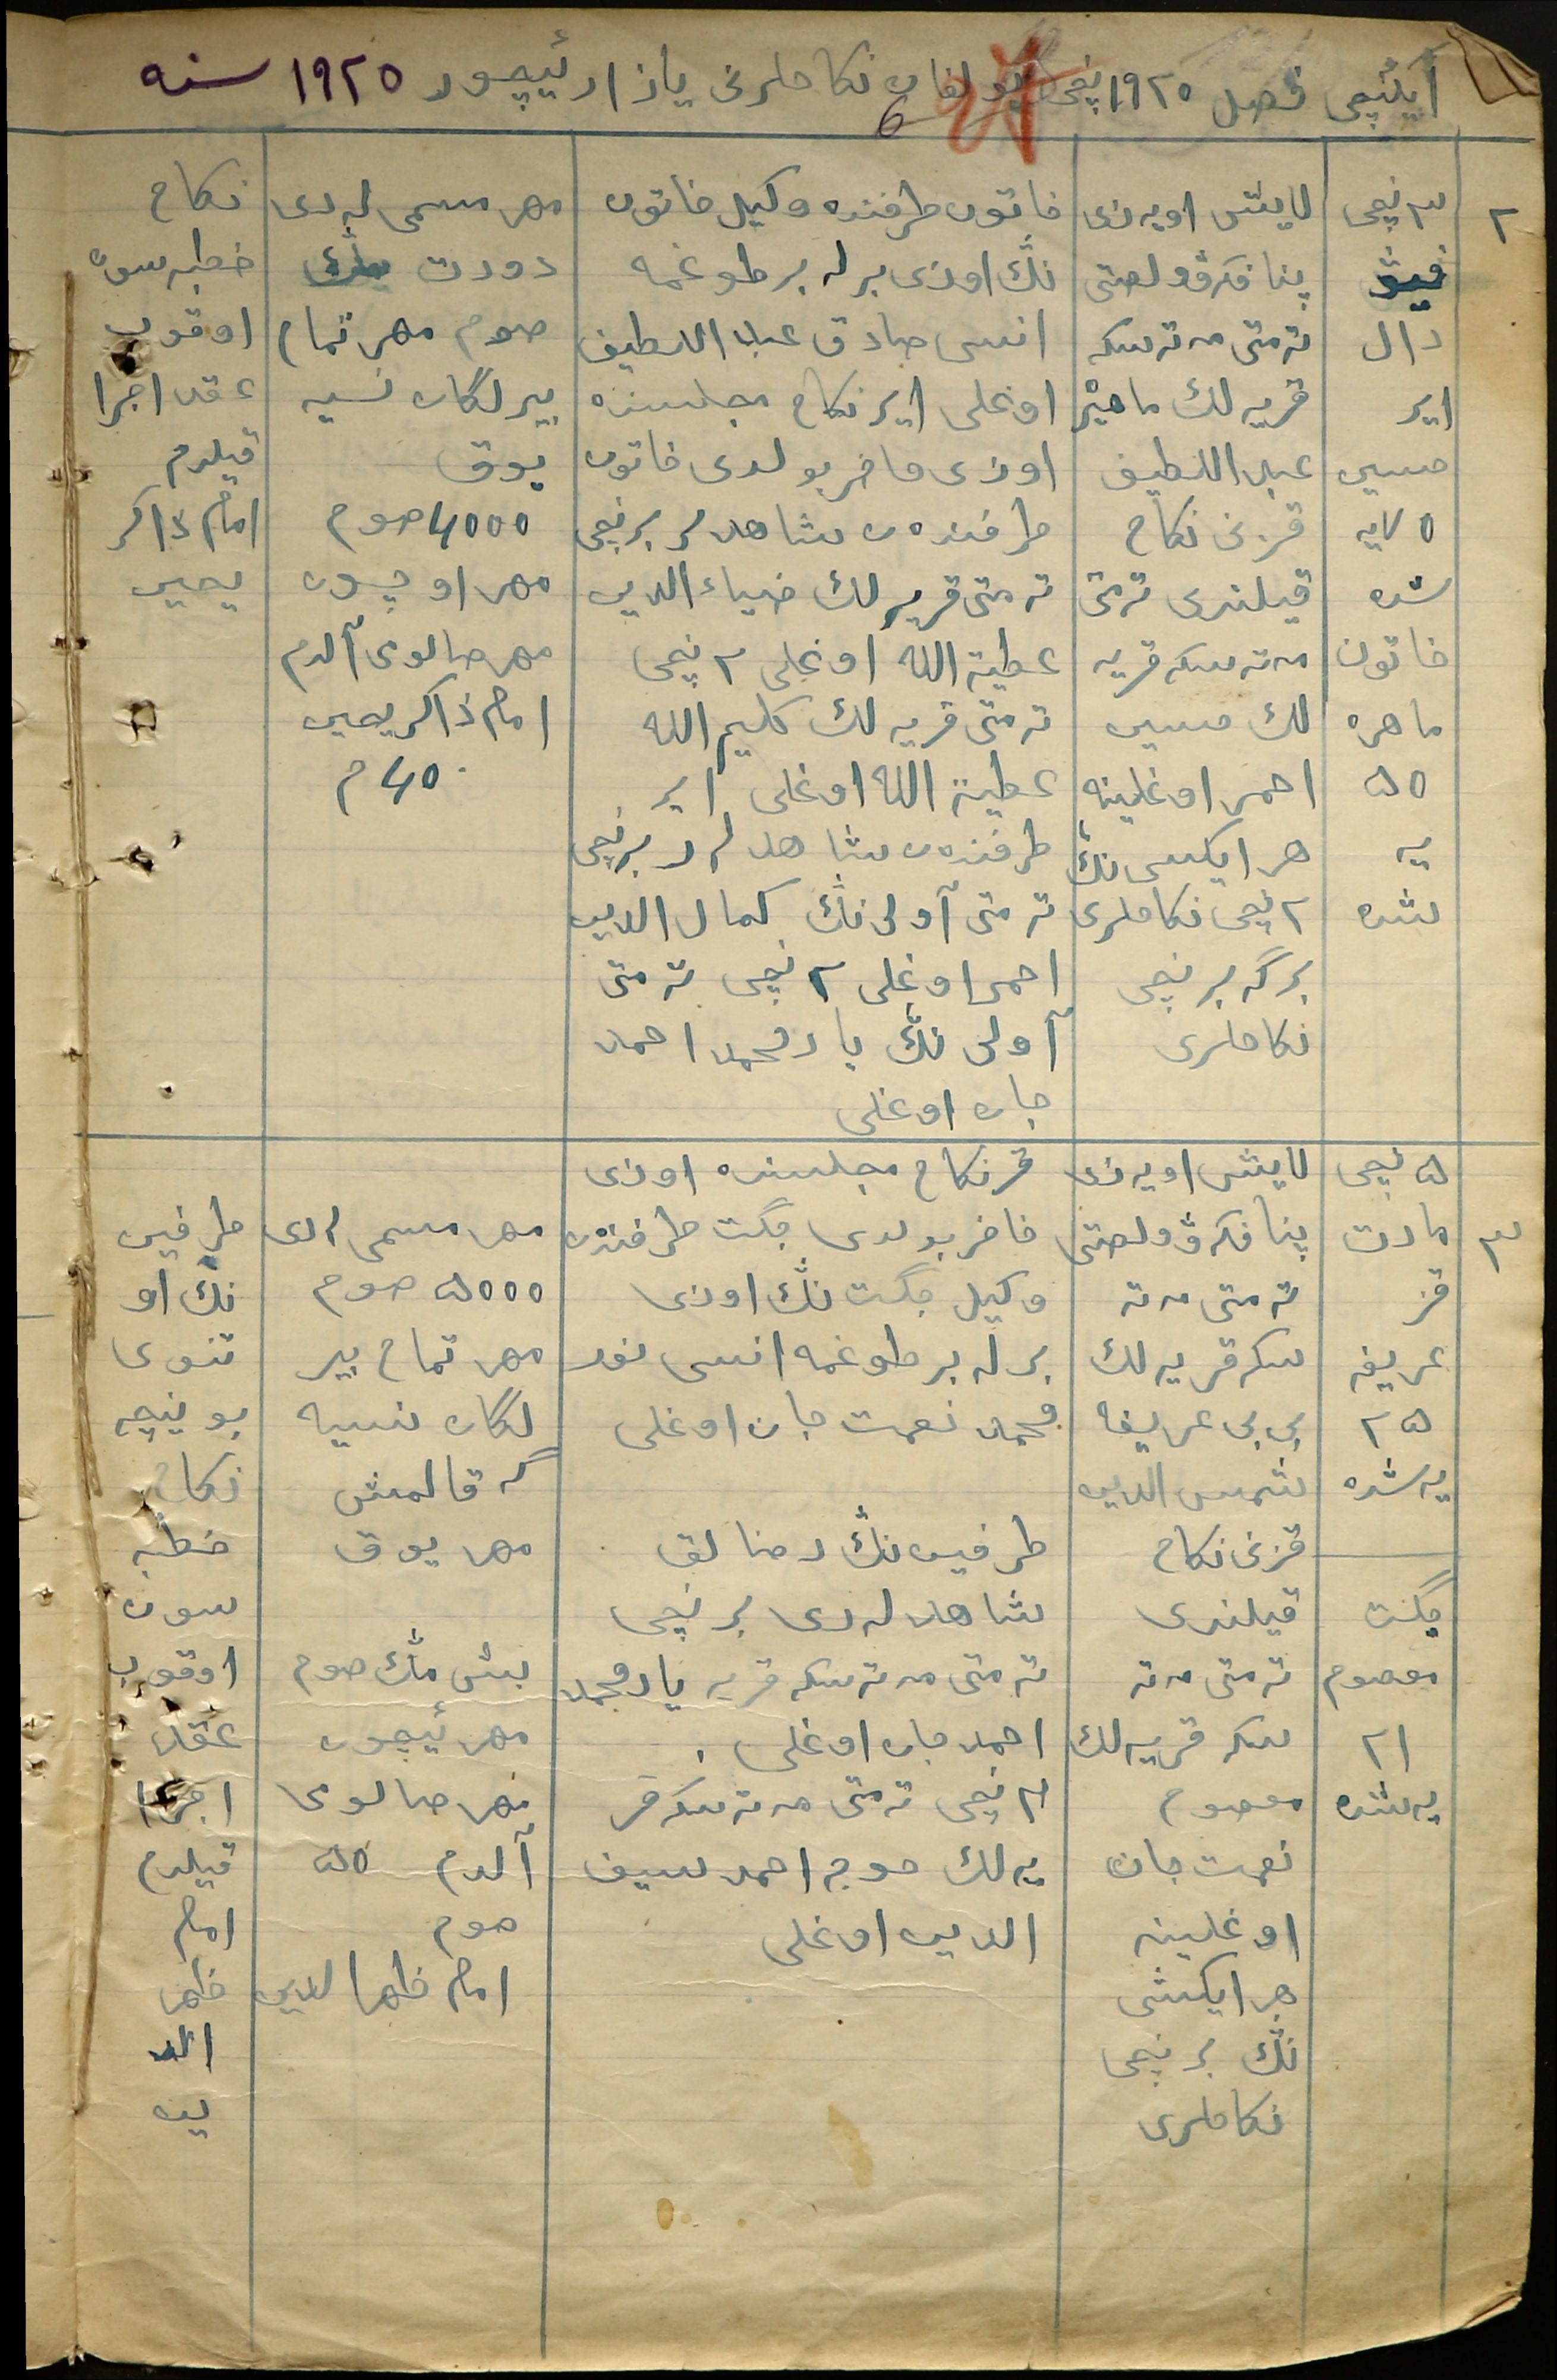 ایکنچی فصل ١٩٢٥ نچی بولغان نكاحلرنی یازار ئیچون ١٩٢٥ سنه
6
٢
٣ نچی
فیوا
دال
ایر
حسین
٧٥ یه
شده
خاتون
ماهره
٥٥
یه
شده
لایش اویەزی
پنافکه ڤولصتی
تەمتی مەتەسکە
قریه لك ماهره
عبد اللطیف
قزنی نكاح
قیلندی تەمتی
مەتەسکە قریه
لك حسین
احمد اوغلینه
هر ایکسی نڭ
٢ نچی نكاحلری
برگه برنچی
نكاحلری
خاتون طرفندن وکیل خاتون
نڭ اوزی برلە برطوغمه
انسی صادق عبد اللطیف
اوغلی ایر نكاح مجلسنده
اوزی حاضر بولدی خاتون
طرفندن شاهدلر برنچی
تەمتی قریه لك ضیاء الدین
عطیة الله اوغلی ٢ نچی
تەمتی قریه لك کلیم الله
عطیة الله اوغلی ایر
طرفندن شاهدلەر برنچی
تەمتی آولی نڭ کمال الدین
احمد اوغلی ٢ نچی تەمتی
آولی نڭ یارمحمد احمد
جان اوغلی
مهر مسمی لەری
دورت مڭ
صوم مهر تمام
بیرلگان نسیه
یوق
4000 صوم
مهر اوچون
مهر صالوی آلدم
امام ذاکر یحیی
40 م
نكاح
خطبه سون
اوقوب
عقد اجرا
قیلدم
امام ذاکر
یحیی
٣
٥ نچی
مارت
قز
عریفه
٢٥
یه شده
یگت
معصوم
٢١
یه شده
لایش اویەزی
پنافکه ڤولصتی
تەمتی مەتە
سکە قریه لك
بی بی عریفه
شمس الدین
قزنی نكاح
قیلندی
تەمتی مەتە
سکە قریه لك
معصوم
نعمت جان
اوغلینه
هر ایکسی
نڭ برنچی
نكاحلری
قز نكاح مجلسنده اوزی
حاضر بولدی یگت طرفندن
وکیل یگت نڭ اوزی
برلە برطوغمه انسی نور
محمد نعمت جان اوغلی
طرفین نڭ رضالق
شاهدلەری برنچی
تەمتی مەتەسکە قریه یارمحمد
احمد جان اوغلی
٢ نچی تەمتی مەتەسکە قر
یه لك خوجه احمد سیف
الدین اوغلی
مهر مسمی لری
٥٠٠٠ صوم
مهر تمام بیر
لگان نسیه
گه قالمش
مهر یوق
بیش مڭ صوم
مهر ئیچون
مهر صالوی
آلدم ٥٥
صوم
امام ظهر الدین
طرفین
نڭ او
تنوی
بوینچه
نكاح
خطبه
سون
اوقوب
عقد
اجرا
قیلدم
امام
ظهر
الد
ین